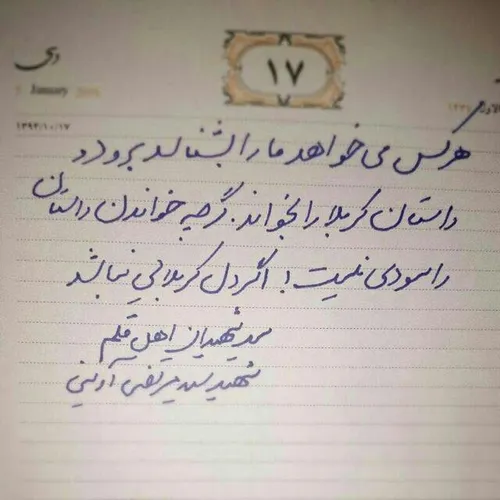 دی
۱۷
January
۱۳۹۳/۱۰/۱۷
هرکس می خواهد ما را بشناسد برود و
داستان کربلا را بخواند. گرچه خواندن داستان
را سودی نیست! اگر دل کربلایی نباشد
سید شهیدان اهل قلم
شهید سید مرتضی آوینی